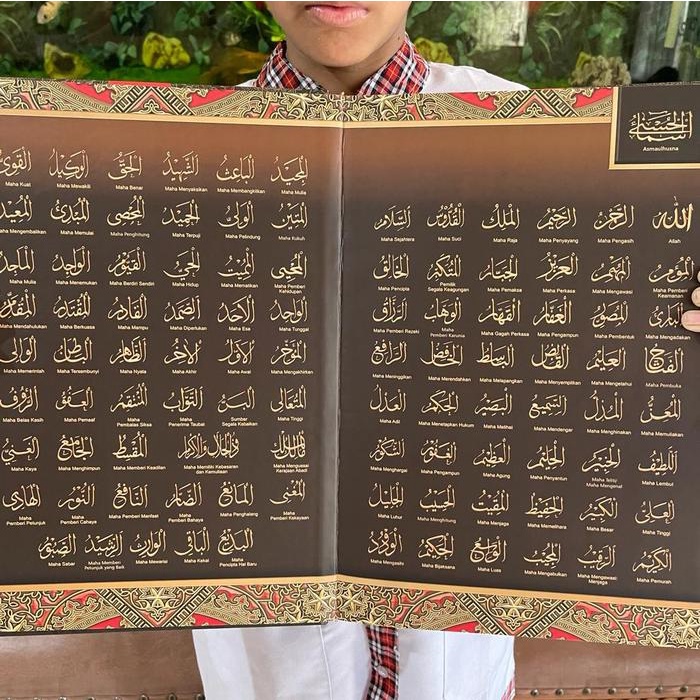 اسماء الحسنى
Asmaulhusna
الله
Allah
الرحمن
Maha Pengasih
الرحيم
Maha Penyayang
الملك
Maha Raja
القدوس
Maha Suci
السلام
Maha Sejahtera
المؤمن
Maha Pemberi
Keamanan
المهيمن
Maha Mengawasi
العزيز
Maha Perkasa
الجبار
Maha Pemaksa
المتكبر
Pemilik
Segala Keagungan
الخالق
Maha Pencipta
البارئ
Maha Mengadakan
المصور
Maha Pembentuk
الغفار
Maha Pengampun
القهار
Maha Gagah Perkasa
الوهاب
Maha
Pemberi Karunia
الرزاق
Maha Pemberi Rezeki
الفتاح
Maha Pembuka
العليم
Maha Mengetahui
القابض
Maha Menyempitkan
الباسط
Maha Melapangkan
الخافض
Maha Merendahkan
الرافع
Maha Meninggikan
المعز
Maha Memuliakan
المذل
Maha Menghinakan
السميع
Maha Mendengar
البصير
Maha Melihat
الحكم
Maha Menetapkan Hukum
العدل
Maha Adil
اللطيف
Maha Lembut
الخبير
Maha Teliti
Maha Mengenal
الحليم
Maha Penyantun
العظيم
Maha Agung
الغفور
Maha Pengampun
الشكور
Maha Menghargai
العلي
Maha Tinggi
الكبير
Maha Besar
الحفيظ
Maha Memelihara
المقيت
Maha Menjaga
الحسيب
Maha Menghitung
الجليل
Maha Luhur
الكريم
Maha Pemurah
الرقيب
Maha Mengawasi
Menjaga
المجيب
Maha Mengabulkan
الواسع
Maha Luas
الحكيم
Maha Bijaksana
الودود
Maha Mengasihi
المجيد
Maha Mulia
الباعث
Maha Membangkitkan
الشهيد
Maha Menyaksikan
الحق
Maha Benar
الوكيل
Maha Mewakili
القوي
Maha Kuat
المتين
Maha Kukuh
الولي
Maha Pelindung
الحميد
Maha Terpuji
المحصي
Maha Penghitung
المبدئ
Maha Memulai
المعيد
Maha Mengembalikan
المحيي
Maha Pemberi
Kehidupan
المميت
Maha Mematikan
الحي
Maha Hidup
القيوم
Maha Berdiri Sendiri
الواجد
Maha Menemukan
الماجد
Maha Mulia
الواحد
Maha Tunggal
الاحد
Maha Esa
الصمد
Maha Diperlukan
القادر
Maha Mampu
المقتدر
Maha Berkuasa
المقدم
Maha Mendahulukan
المؤخر
Maha Mengakhirkan
الاول
Maha Awal
الاخر
Maha Akhir
الظاهر
Maha Nyata
الباطن
Maha Tersembunyi
الوالي
Maha Memerintah
المتعالي
Maha Tinggi
البر
Sumber
Segala Kebaikan
التواب
Maha
Penerima Taubat
المنتقم
Maha
Pembalas Siksa
العفو
Maha Pemaaf
الرؤوف
Maha Belas Kasih
مالك الملك
Maha Menguasai
Kerajaan Abadi
ذو الجلال والاكرام
Maha Memiliki Kebesaran
dan Kemuliaan
المقسط
Maha Memberi Keadilan
الجامع
Maha Menghimpun
الغني
Maha Kaya
المغني
Maha
Pemberi Kekayaan
المانع
Maha Penghalang
الضار
Maha
Pemberi Bahaya
النافع
Maha
Pemberi Manfaat
النور
Maha
Pemberi Cahaya
الهادي
Maha
Pemberi Petunjuk
البديع
Maha
Pencipta Hal Baru
الباقي
Maha Kekal
الوارث
Maha Mewarisi
الرشيد
Maha Memberi
Petunjuk yang Baik
الصبور
Maha Sabar